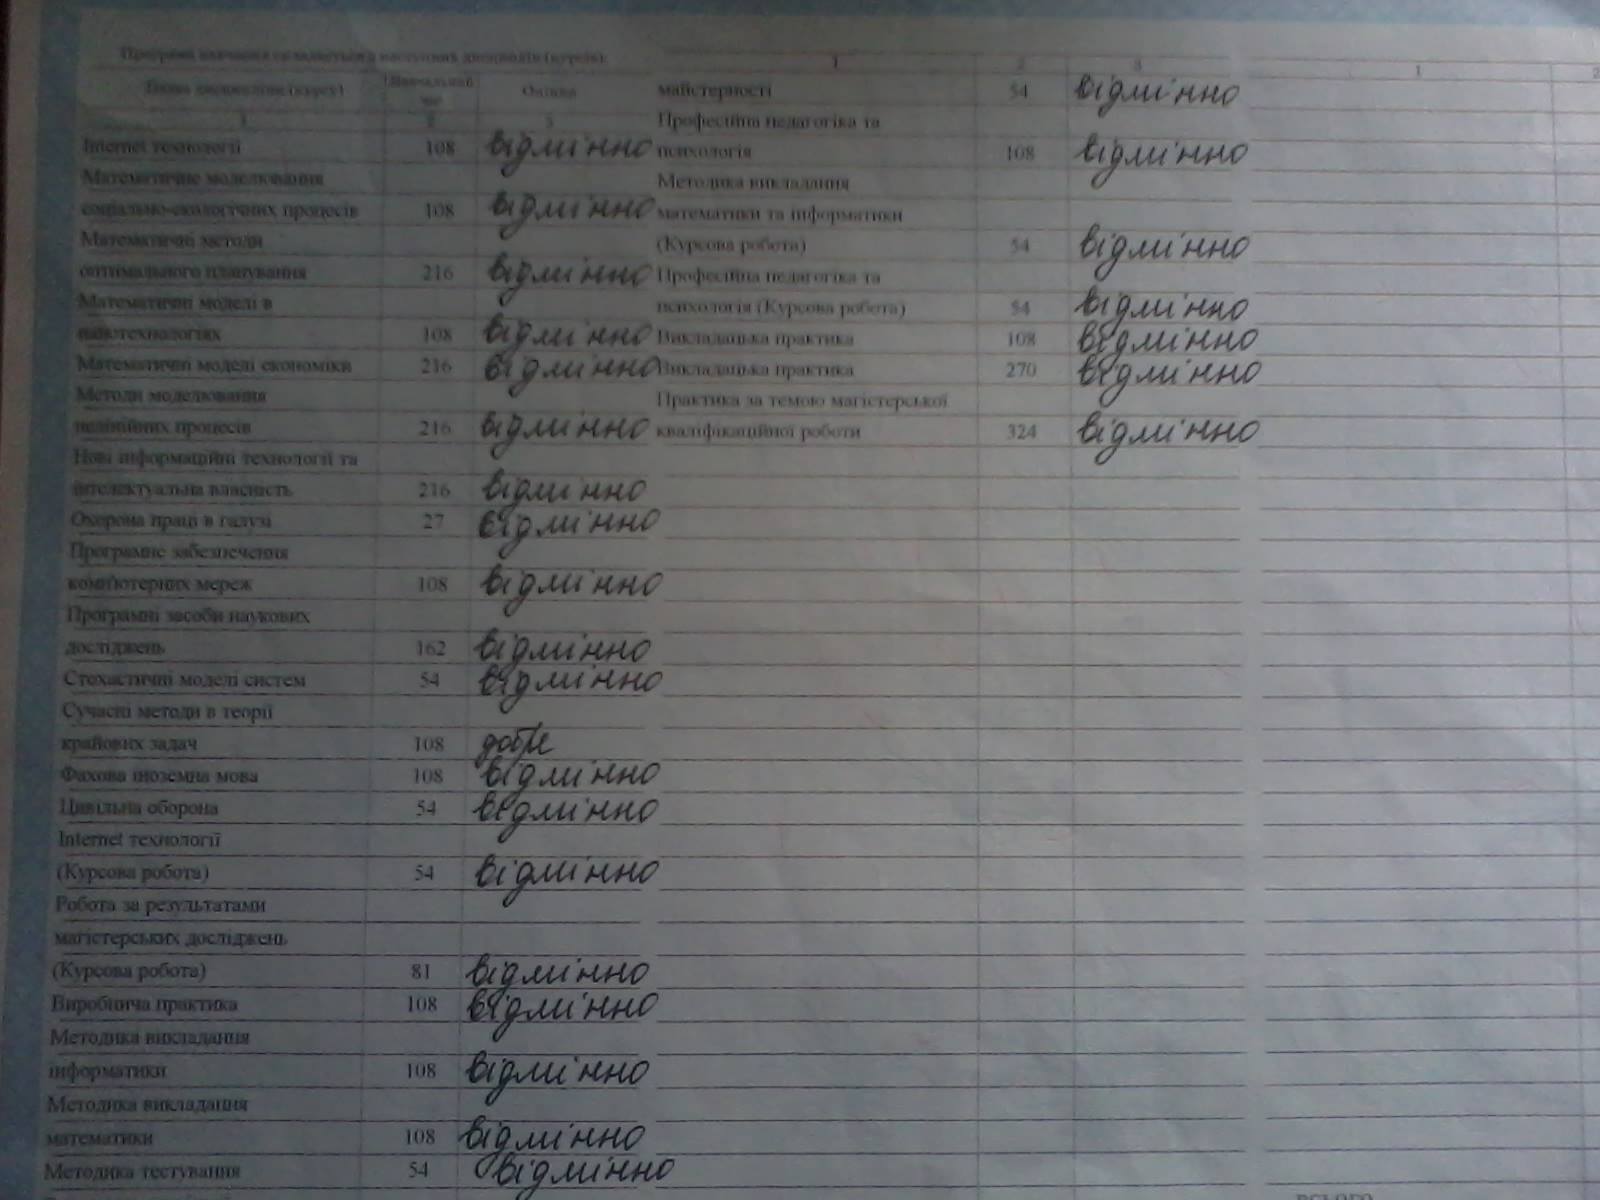 Програма навчання складається з наступних дисциплін (курсів):
Назва дисципліни (курсу) Навчальний час Оцінка
1 2 3
Internet технології 108 відмінно
Математичне моделювання
соціально-екологічних процесів 108 відмінно
Математичні методи
оптимального планування 216 відмінно
Математичні моделі в
нанотехнологіях 108 відмінно
Математичні моделі економіки 216 відмінно
Методи моделювання
нелінійних процесів 216 відмінно
Нові інформаційні технології та
інтелектуальна власність 216 відмінно
Охорона праці в галузі 27 відмінно
Програмне забезпечення
комп'ютерних мереж 108 відмінно
Програмні засоби наукових
досліджень 162 відмінно
Стохастичні моделі систем 54 відмінно
Сучасні методи в теорії
крайових задач 108 добре
Фахова іноземна мова 108 відмінно
Цивільна оборона 54 відмінно
Internet технології
(Курсова робота) 54 відмінно
Робота за результатами
магістерських досліджень
(Курсова робота) 81 відмінно
Виробнича практика 108 відмінно
Методика викладання
інформатики 108 відмінно
Методика викладання
математики 108 відмінно
Методика тестування 54 відмінно
1 2 3
майстерності 54 відмінно
Професійна педагогіка та
психологія 108 відмінно
Методика викладання
математики та інформатики
(Курсова робота) 54 відмінно
Професійна педагогіка та
психологія (Курсова робота) 54 відмінно
Викладацька практика 108 відмінно
Викладацька практика 270 відмінно
Практика за темою магістерської
кваліфікаційної роботи 324 відмінно
1 2